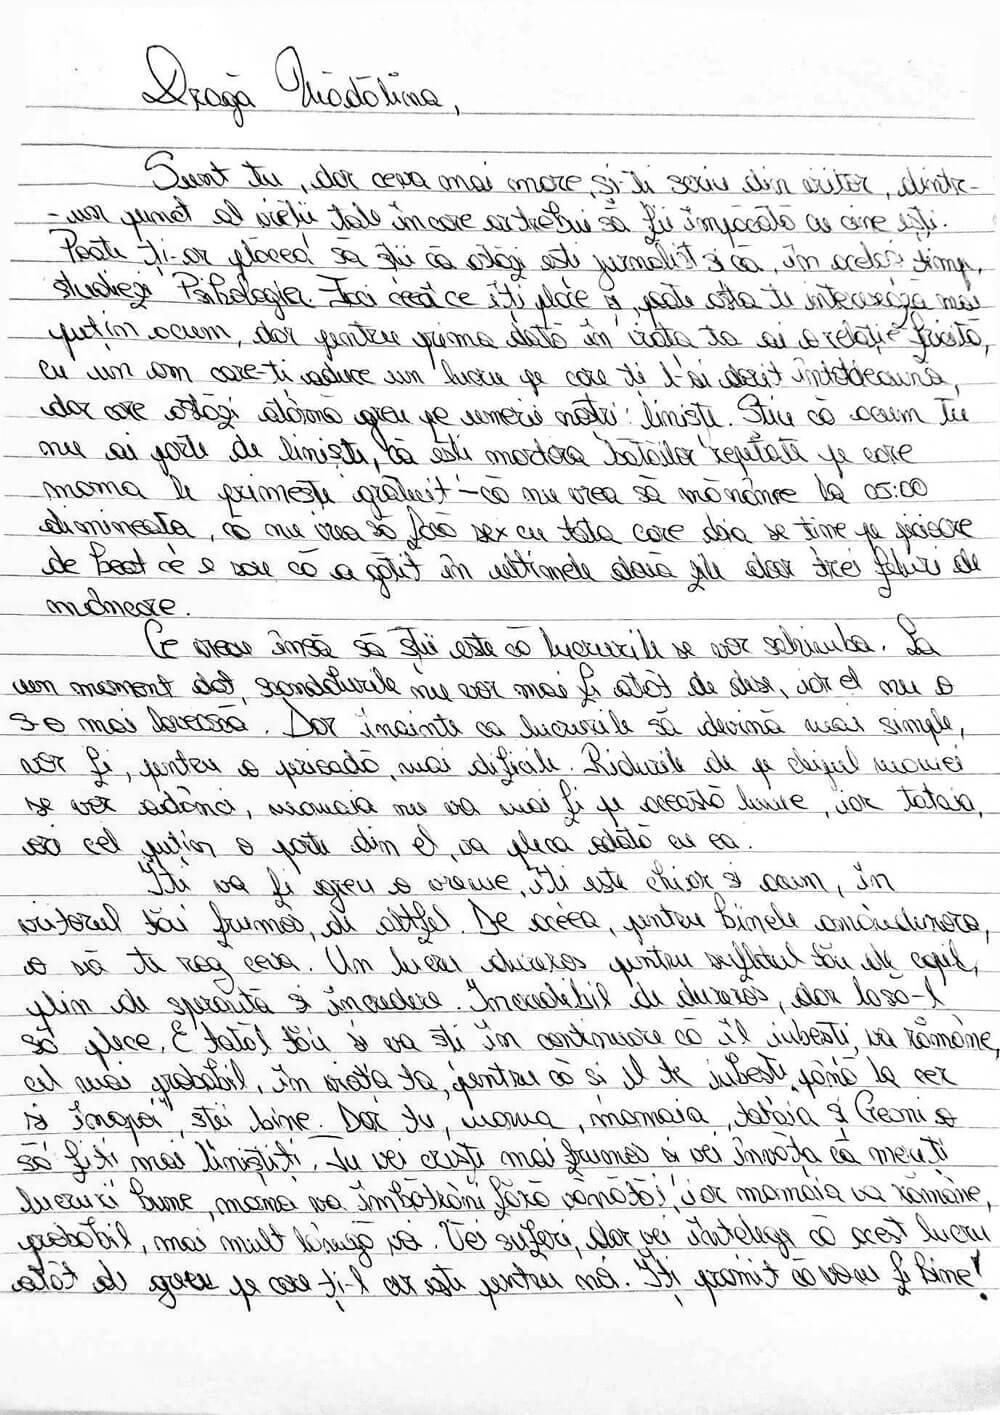 Dragă Mădălina,
Sunt tu, dar ceva mai mare, și-ți scriu din viitor, dintr-
-un punct al vieții tale în care ar trebui să fii împăcată cu cine ești.
Poate ți-ar plăcea să știi că astăzi ești jurnalistă și că, în același timp,
studiezi Psihologia. Faci ceea ce îți place și, poate asta te interesează mai
puțin acum, dar pentru prima dată în viața ta ai o relație fericită,
cu un om care-ți aduce un lucru pe care ți l-ai dorit întotdeauna,
dar care astăzi atârnă greu pe umerii noștri: liniște. Știu că acum tu
nu ai parte de liniște, că ești martora bătăilor repetate pe care
mama le primește gratuit - că nu vrea să mănânce la 05:00
dimineața, că nu vrea să facă sex cu tata care abia se ține pe picioare
de beat ce e sau că a gătit în ultimele două zile doar trei feluri de
mâncare.
Ce vreau însă să știi este că lucrurile se vor schimba. La
un moment dat, scandalurile nu vor mai fi atât de dese, iar el nu o
s-o mai lovească. Dar înainte ca lucrurile să devină mai simple,
vor fi, pentru o perioadă, mai dificile. Ridurile de pe chipul mamei
se vor adânci, mamaia nu va mai fi pe această lume, iar tataia,
ori cel puțin o parte din el, va pleca odată cu ea.
Îți va fi greu o vreme, îți este chiar și acum, în
viitorul tău frumos, de altfel. De aceea, pentru binele amândurora,
o să te rog ceva. Un lucru dureros pentru sufletul tău de copil,
plin de speranță și încredere. Incredibil de dureros, dar lasă-l
să plece. E tatăl tău și va ști în continuare că îl iubești, va rămâne,
cel mai probabil, în viața ta, pentru că și el te iubește „până la cer
și înapoi”, știi bine. Dar tu, mama, mamaia, tataia și Geani o
să fiți mai liniștiți. Tu vei crește mai frumos și vei învăța că meriți
lucruri bune, mama va îmbătrâni fără vânătăi, iar mamaia va rămâne,
probabil, mai mult lângă voi. Vei suferi, dar vei înțelege că acest lucru
atât de greu pe care ți-l cer este pentru noi. Îți promit că vom fi bine!